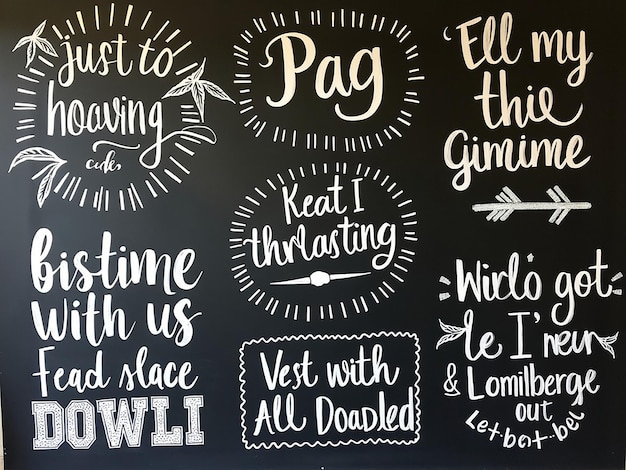 just to
hoaving
Pag
Ell my
thie
Gimime
Keat I
thrlasting
bistime
with us
Fead slace
DOWLI
Vest with
All Doadled
Wirlo got
le I'neur
& Lomilberge
out